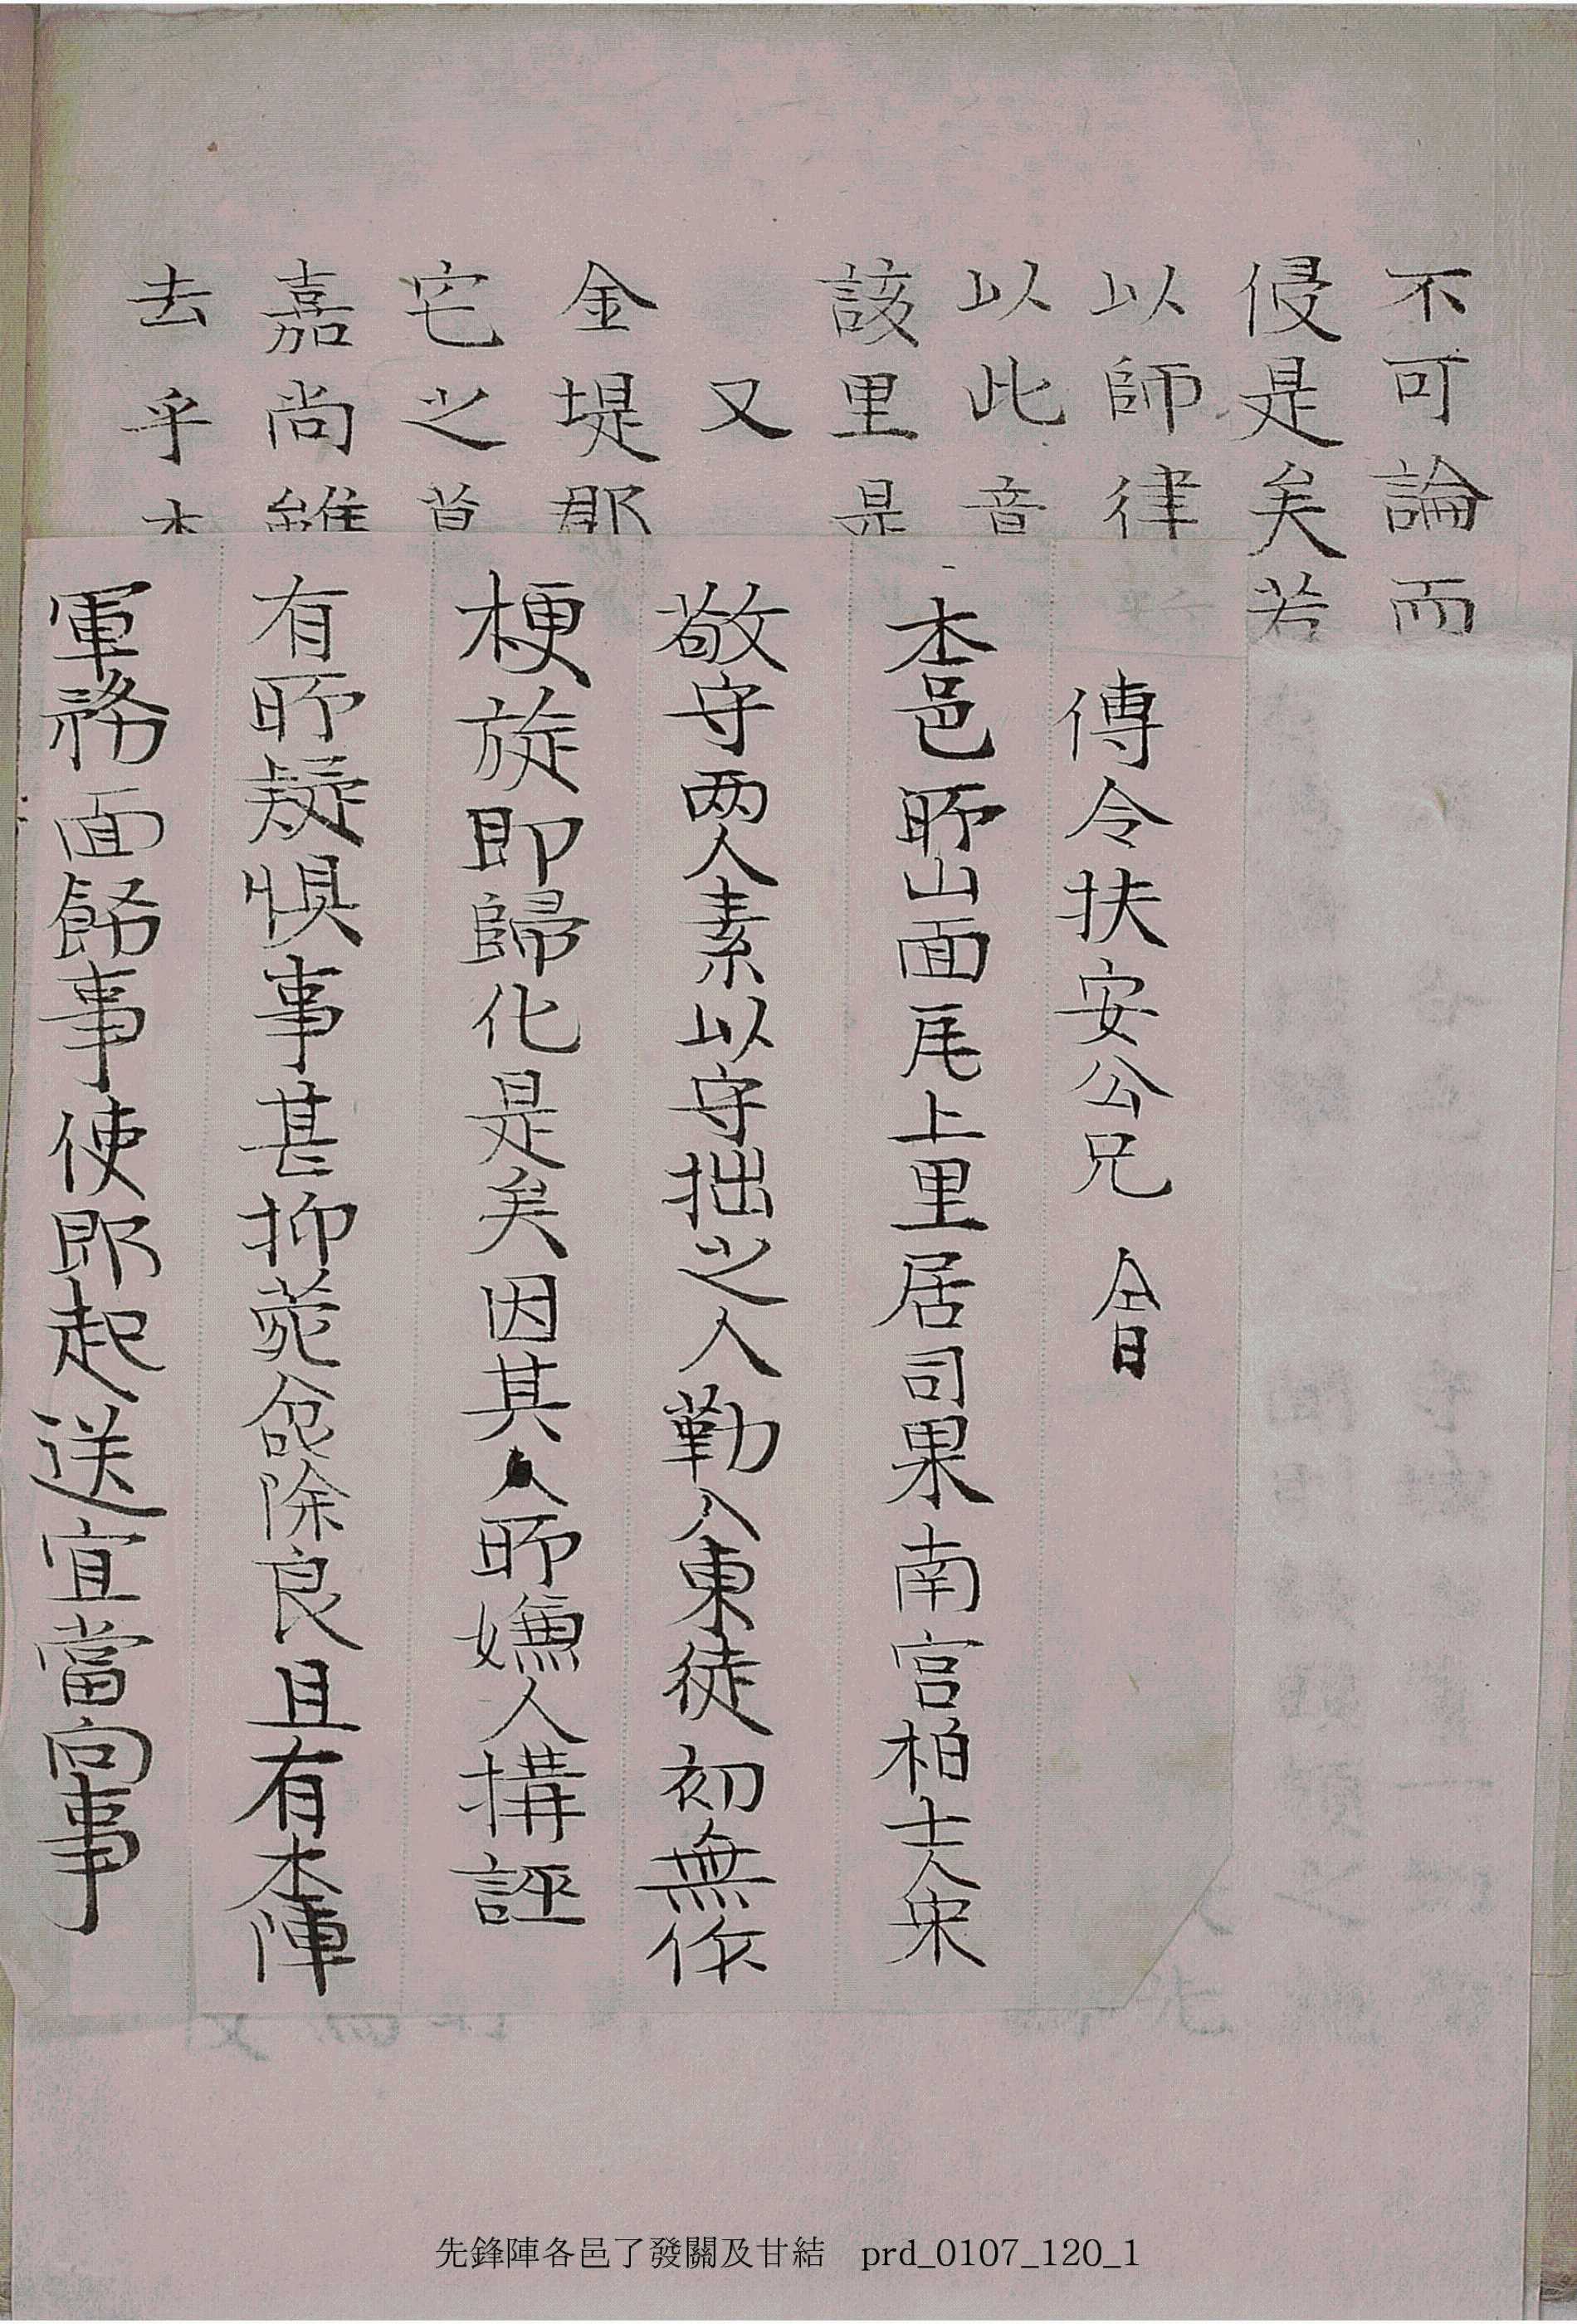 不可論而
侵是矣若
以師律
以此
該里
又
金堤郡
宅之
嘉尚雖
去乎
傳令扶安公兄 仝日
本邑所山面尾上里居司果南宮柏士人宋
敬守两人素以守拙之人勒入東徒初無作
梗旋即歸化是矣因其人所嫌人搆誣
有所疑惧事甚抑菀兺除良且有本陣
軍務面飭事使即起送宜當向事
先鋒陣各邑了發關及甘結 prd_0107_120_1